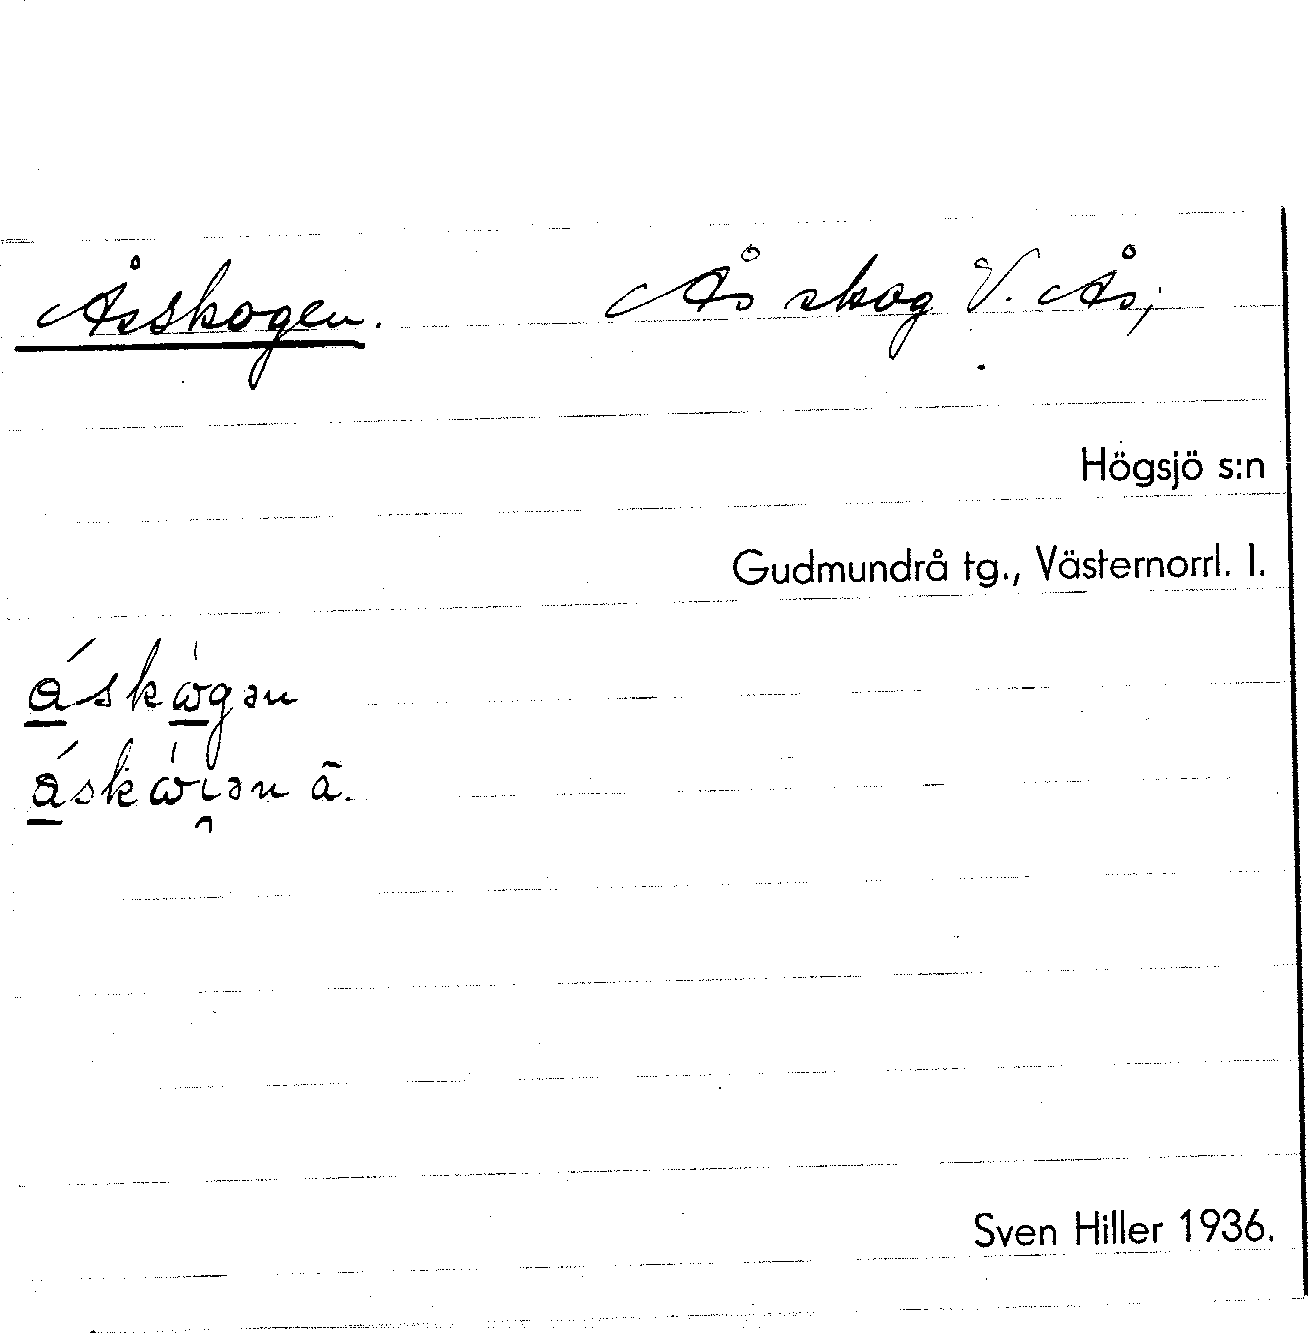 Åsskogen. Ås skog V. Ås;
Högsjö s:n
Gudmundrå tg., Västernorrl. l.
á̲skὼ̲gən
á̲skὼɩ̯ən ā.
Sven Hiller 1936.